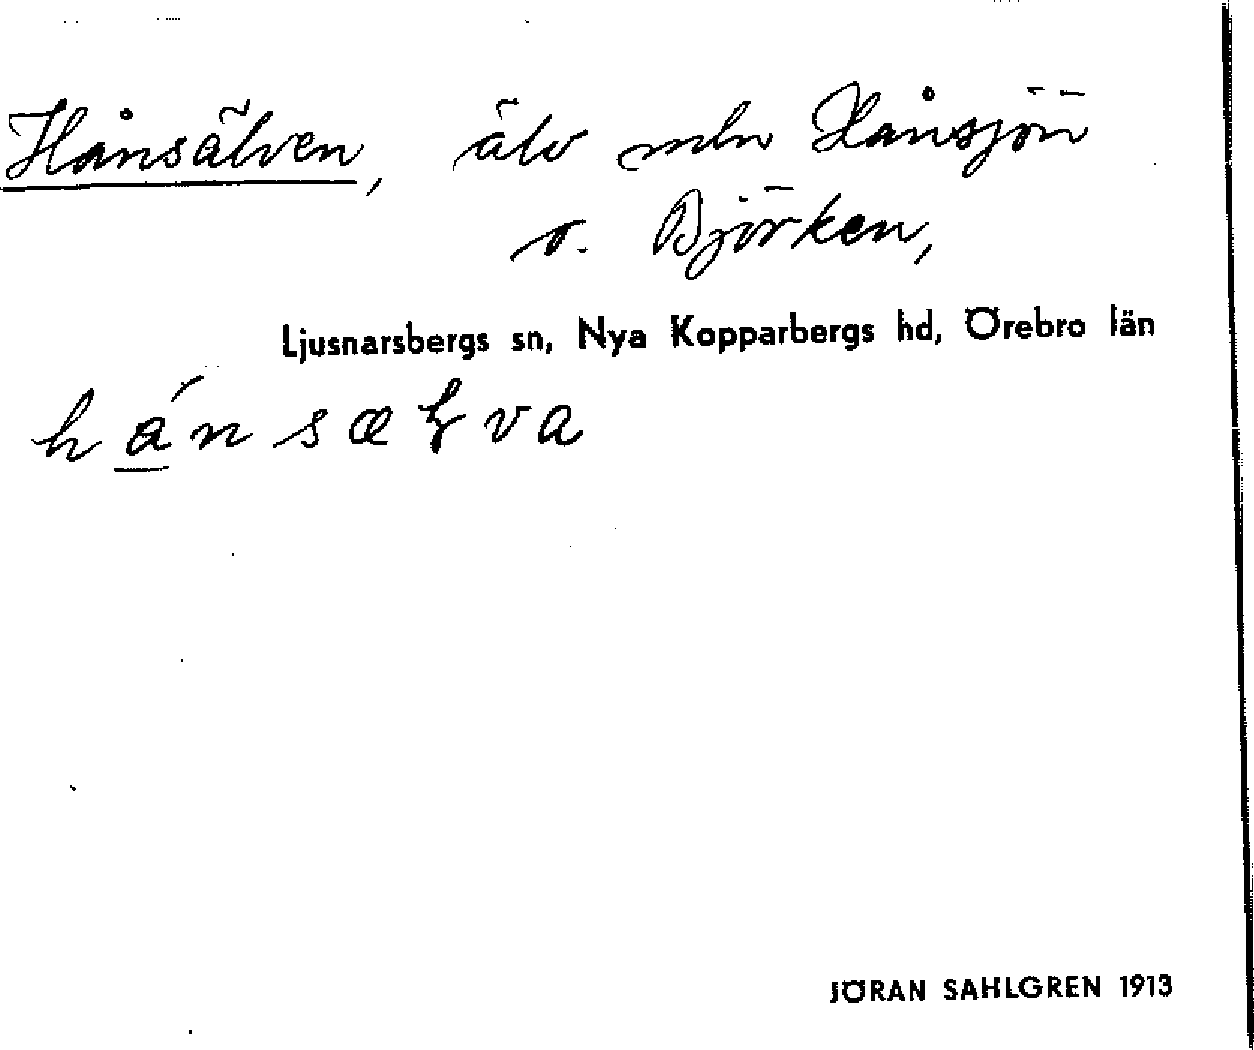 Hånsälven, älv mln Hånsjön
o. Björken,
Ljusnarsbergs sn, Nya Kopparbergs hd, Örebro län
JÖRAN SAHLGREN 1913